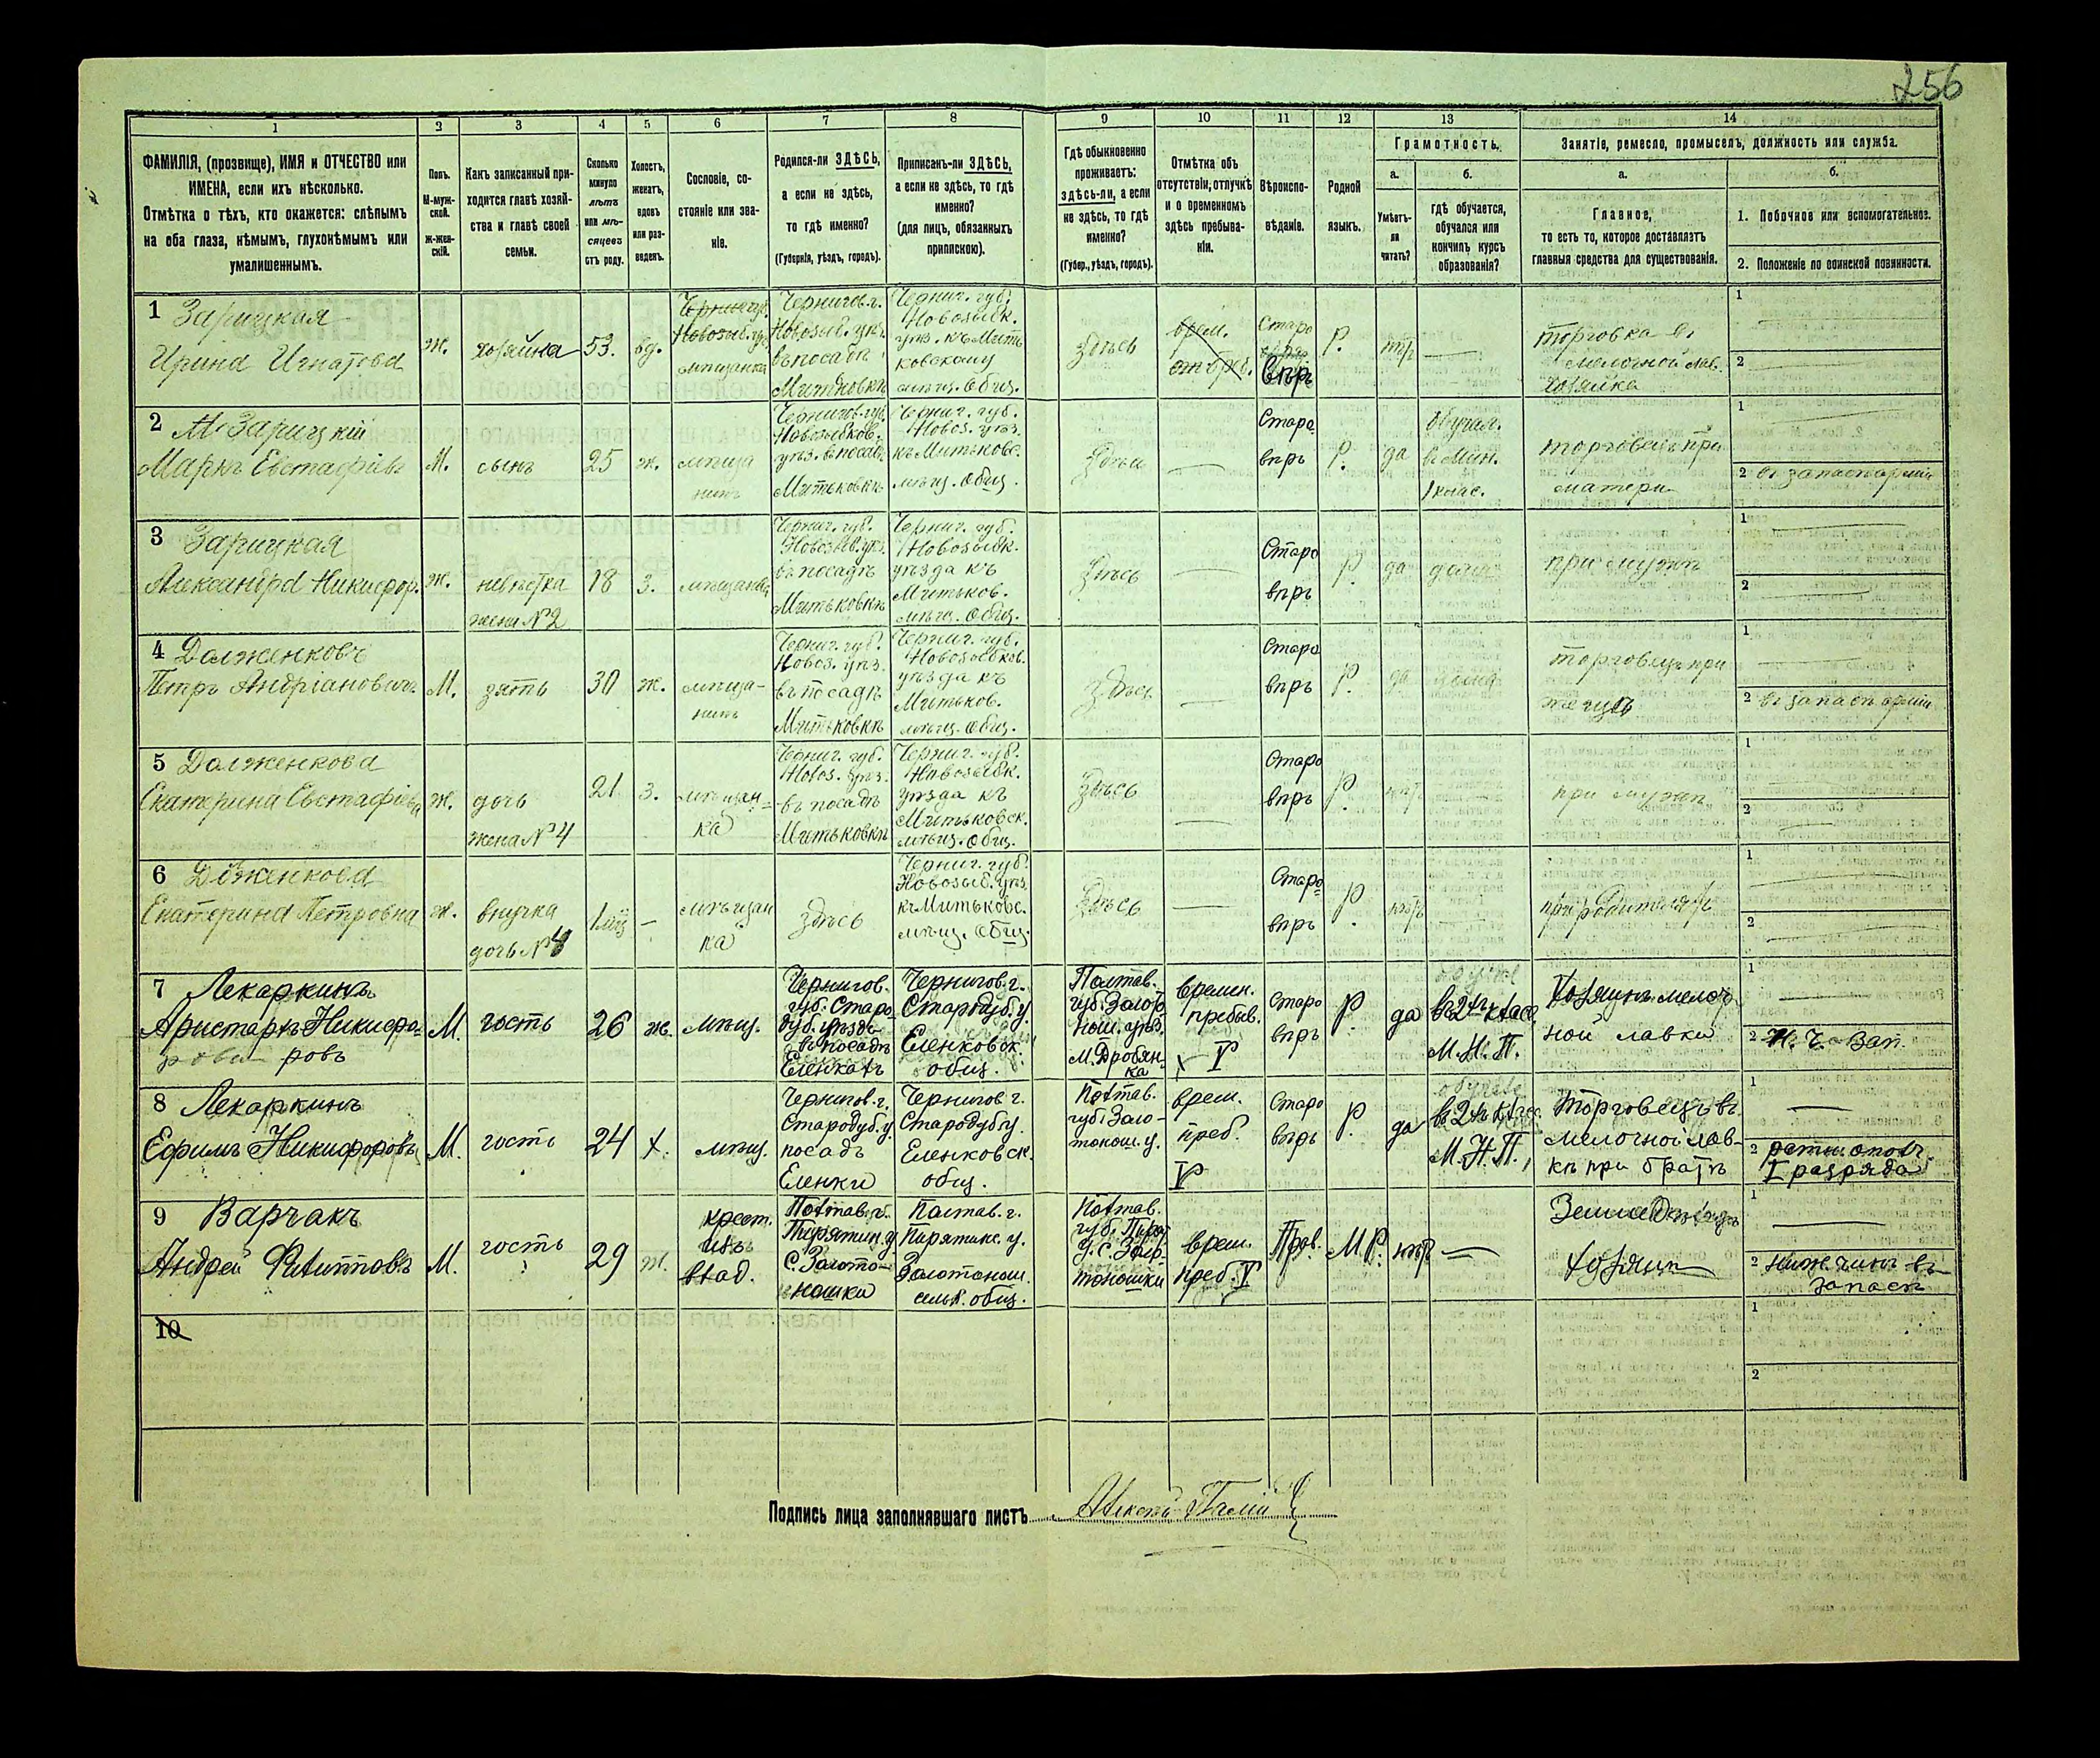 256
1 2 3 4 5 6 7 8 9 10 11 12 13 14
ФАМИЛІЯ, (прозвище), ИМЯ и ОТЧЕСТВО или
ИМЕНА, если ихъ нѣсколько.
Отмѣтка о тѣхъ, кто окажется: слѣпымъ
на оба глаза, нѣмымъ, глухонѣмымъ или
умалишеннымъ.
Полъ.
М-муж-
ской.
Ж-жен-
скій.
Какъ записанный при-
ходится главѣ хозяй-
ства и главѣ своей
семьи.
Сколько
минуло
лѣтъ
или мѣ-
сяцевъ
отъ роду.
Холостъ,
женатъ,
вдовъ
или раз-
веденъ.
Сословіе, со-
стояніе или зва-
ніе.
Родился-ли ЗДѢСЬ,
а если не здѣсь,
то гдѣ именно?
(Губернія, уѣздъ, городъ).
Приписанъ-ли ЗДѢСЬ,
а если не здѣсь, то гдѣ
именно?
(для лицъ, обязанныхъ
припискою).
Гдѣ обыкновенно
проживаетъ:
здѣсь-ли, а если
не здѣсь, то гдѣ
именно?
(Губер., уѣздъ, городъ).
Отмѣтка объ
отсутствіи, отлучкѣ
и о временномъ
здѣсь пребыва-
ніи.
Вѣроиспо-
вѣданіе.
Родной
языкъ.
Грамотность.
а.
Умѣетъ-
ли
читать?
б.
гдѣ обучается,
обучался или
кончилъ курсъ
образованія?
Занятіе, ремесло, промыселъ, должность или служба.
а.
Главное,
то есть то, которое доставляетъ
главныя средства для существованія.
б.
1. Побочное или вспомогательное.
2. Положеніе по воинской повинности.
1 Зарицкая
Ирина Игнатова
ж.
хозяйка
53.
вд.
мѣщанка
Чернигов. г.
Новозыб. уѣз.
въ посадѣ
Митьковкѣ
Черниг. губ.
Новозыбк.
уѣз. къ Мить
ковскому
мѣщ. общ.
Здѣсь
врем.
Старо
вѣръ
Р.
нѣтъ
торговка въ
мелочной лав.
хозяйка
1
2
2 Зарицкій
Маркъ Евстафіевъ
М.
сынъ
25
ж.
мѣща
нинъ
Чернигов. губ.
Новозыбков.
уѣз. въ посад.
Митьковкѣ
Черниг. губ.
Новоз. уѣз.
къ Митьковс.
мѣщ. общ.
Здѣсь
Старо
вѣръ
Р.
да
обучал.
въ Мин.
1 клас.
торговецъ при
матери
1
2 въ запасѣ арміи
3 Зарицкая
Александра Никифор.
ж.
невѣстка
жена №2
18
з.
мѣщанка
Черниг. губ.
Новозыб. уѣз.
въ посадѣ
Митьковкѣ
Черниг. губ.
Новозыбк.
уѣзда къ
Митьков.
мѣщ. общ.
Здѣсь
Старо
вѣръ
Р.
да
дома
при мужѣ
1
2
4 Долженковъ
Петръ Андріановичъ
М.
зять
30
ж.
мѣща-
нинъ
Черниг. губ.
Новоз. уѣз.
въ посадѣ
Митьковкѣ
Черниг. губ.
Новозыбков.
уѣзда къ
Митьков.
мѣщ. общ.
Здѣсь
Старо
вѣръ
Р.
да
дома
торговецъ при
1
2 въ запасѣ арміи
5 Долженкова
Екатерина Евстафіева
ж.
дочь
жена №4
21
з.
мѣщан-
ка
Черниг. губ.
Новоз. уѣз.
въ посадѣ
Митьковкѣ
Черниг. губ.
Новозыбк.
уѣзда къ
Митьковск.
мѣщ. общ.
Здѣсь
Старо
вѣръ
Р.
нѣтъ
при мужѣ
1
2
6 Долженкова
Екатерина Петровна
ж.
внучка
дочь №4
1 мѣ
–
мѣщан
ка
здѣсь
Черниг. губ.
Новозыб. уѣз.
къ Митьковс.
мѣщ. общ.
Здѣсь
Старо
вѣръ
Р.
нѣтъ
при родителяхъ
1
2
7 Лекаркинъ
Аристархъ Никифо-
ровъ
М.
гость
26
ж.
мѣщ.
Чернигов.
губ. Старо
дуб. уѣздъ
въ посадѣ
Еленкахъ
Чернигов. г.
Стародуб. у.
Еленковск.
общ.
Полтав.
губ. Золото
нош. уѣз.
М. Дробян-
ка
времен.
пребыв.
V
Старо
вѣръ
Р.
да
въ 2хъ клас.
М. Н. П.
Хозяинъ мелоч
ной лавки
1
2 Н. Ч. Зап.
8 Лекаркинъ
Ефимъ Никифоровъ
М.
гость
24
х.
мѣщ.
Чернигов. г.
Стародуб. у.
посадъ
Еленки
Чернигов г.
Стародуб у.
Еленковск.
общ.
Полтав.
губ. Золо-
тонош. у.
врем.
преб.
V
Старо
вѣръ
Р.
да
въ 2хъ клас.
М. Н. П.
Торговецъ въ
мелочной лав-
кѣ при братѣ
1
2 ратн. опол.
I разряда
9 Варчакъ
Андрей Филипповъ
М.
гость
29
ж.
крест.
изъ
влад.
Полтав. г.
Пирятин. у.
С. Золото-
ношки
Полтав. г.
Пирятинс. у.
Золотонош.
сельс. общ.
Полтав.
губ. Пиря
у. с. Золо-
тоношки
врем.
преб. V
Прав.
М. Р.
нѣтъ
Земледѣлецъ
хозяинъ
1
2 ниж. чинъ въ
запасѣ
10
1
2
Подпись лица заполнявшаго листъ